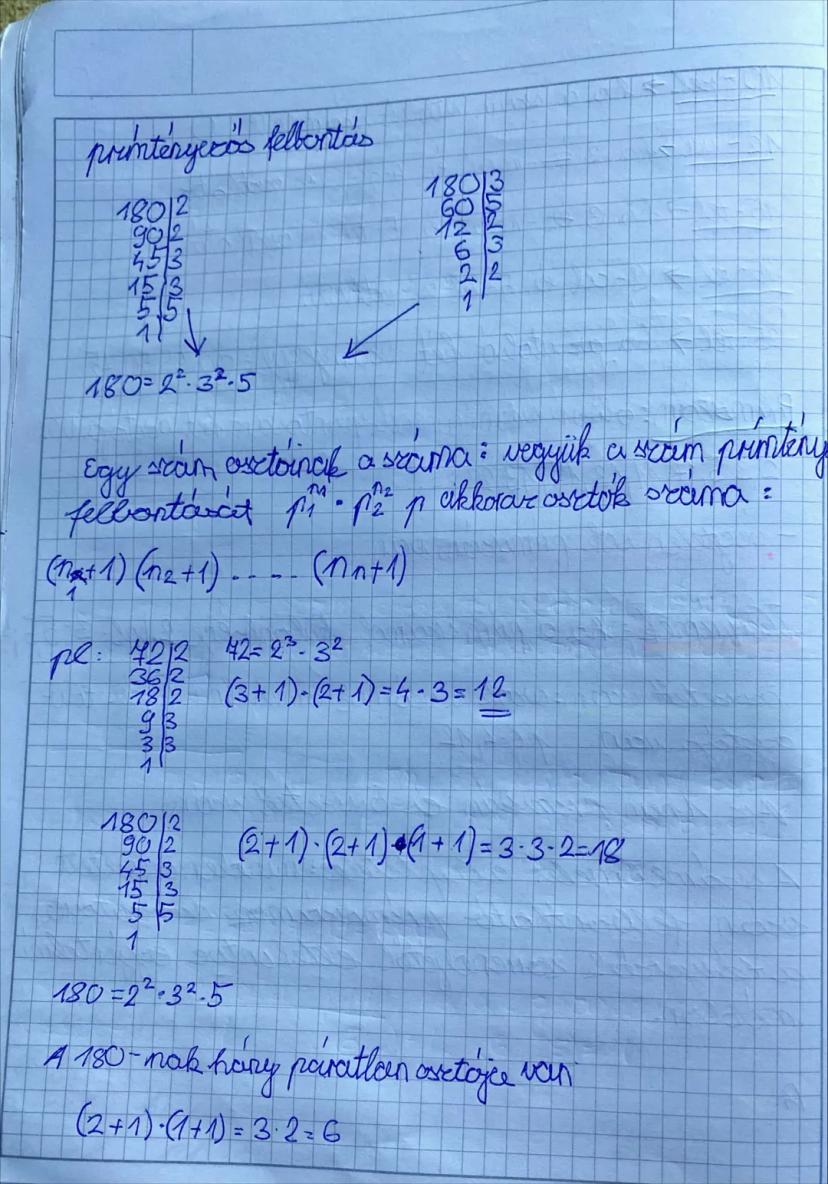 prímtényezős felbontás
180|2
90|2
45|3
15|3
5|5
1|
180|3
60|5
12|2
6|3
2|2
1|
180=2²·3²·5
Egy szám osztóinak a száma: vegyük a szám prímtény
felbontását p₁ⁿ¹ · p₂ⁿ² p akkor az osztók száma:
(n₁+1) (n₂+1) ..... (nₙ+1)
pl: 72|2 72=2³·3²
36|2
18|2 (3+1)·(2+1)=4·3=12
9|3
3|3
1|
180|2
90|2 (2+1)·(2+1)·(1+1)=3·3·2=18
45|3
15|3
5|5
1
180=2²·3²·5
A 180-nak hány páratlan osztója van
(2+1)·(1+1)=3·2=6